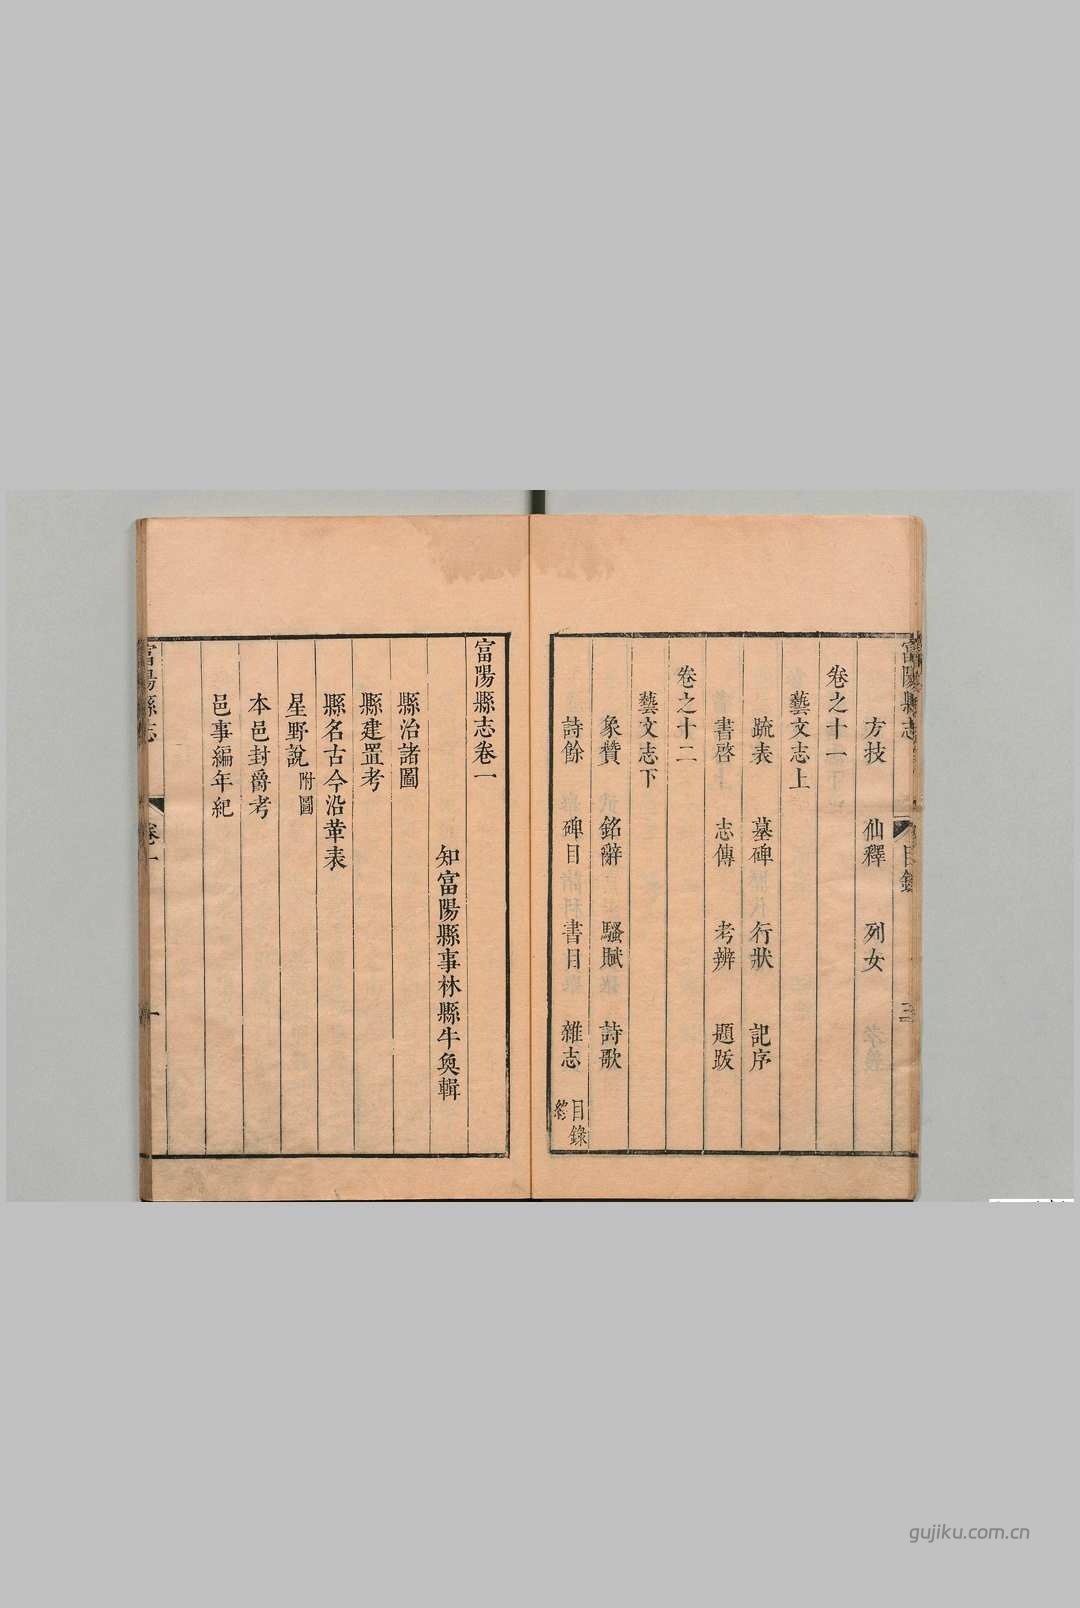 富陽縣志
目錄
三
方技　仙釋　列女
卷之十一
藝文志上
疏表　墓碑　行狀　記序
書啓　志傳　考辨　題跋
卷之十二
藝文志下
象贊　銘辭　騷賦　詩歌
詩餘　碑目　書目　雜志
目錄
終
富陽縣志卷一
知富陽縣事林縣牛奐輯
縣治諸圖
縣建置考
縣名古今沿革表
星野說附圖
本邑封爵考
邑事編年紀
富陽縣志
卷一
一
gujiku.com.cn